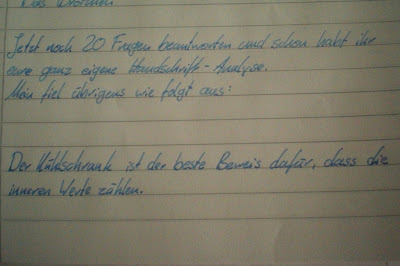 Das
Jetzt noch 20 Fragen beantworten und schon habt ihr
eure ganz eigene Handschrift-Analyse.
Mein fiel übrigens wie folgt aus:
Der Kühlschrank ist der beste Beweis dafür, dass die
inneren Werte zählen.